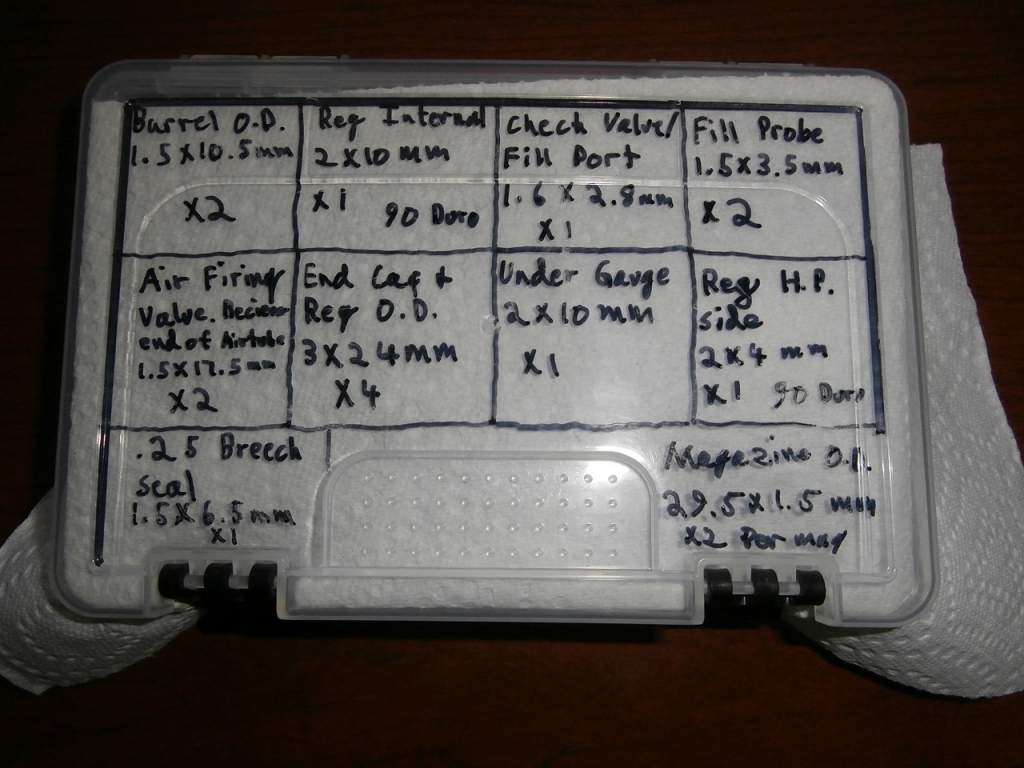 Barrel O.D.
1.5 X 10.5mm
X2
Reg Internal
2 X 10 mm
X1 90 Duro
Check Valve/
Fill Port
1.6 X 2.8mm
X1
Fill Probe
1.5 X 3.5mm
X2
Air Firing
Valve.
end of Airtube
1.5 X 17.5mm
X2
End Cap +
Reg O.D.
3 X 24mm
X4
Under Gauge
2 X 10 mm
X1
Reg H.P.
side
2 X 4 mm
X1 90 Duro
.25 Breech
seal
1.5 X 6.5mm
X1
Magazine O.D.
29.5 X 1.5 mm
X2 Per mag